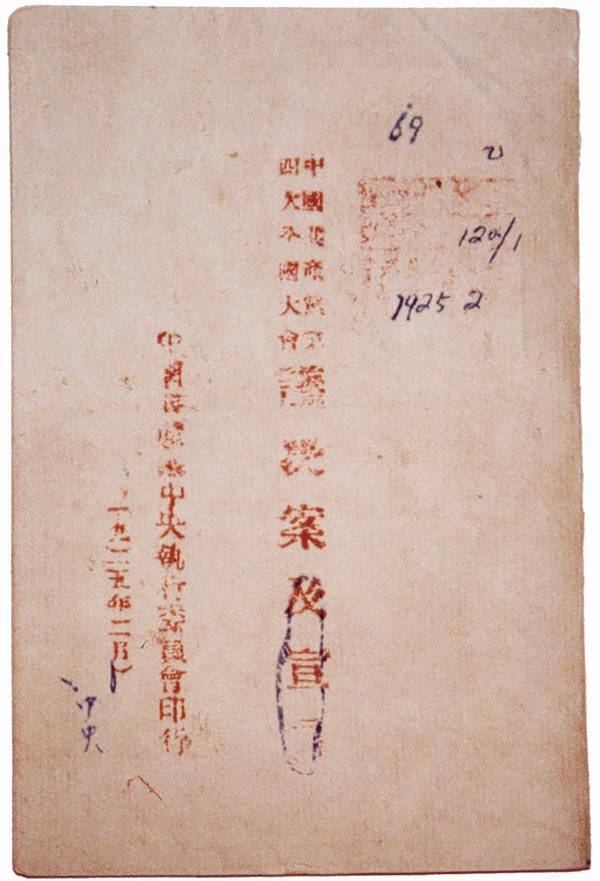 69
2
120/1
1925 2
中國共產黨第
四次全國大會
議決案及宣言
中國共產黨中央執行委員會印行
一九二五年二月
中央